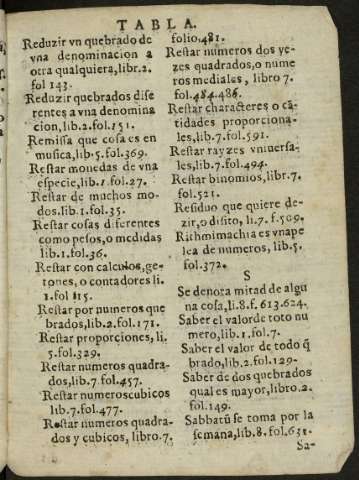 TABLA.
Reduzir vn quebrado de
vna denominacion a
otra qualquiera, libr.2.
fol 143.
Reduzir quebrados dife
rentes a vna denomina
cion, lib.2.fol.151.
Remissa que cosa es en
musica, lib.5.fol.369.
Restar monedas de vna
especie, lib.1.fol.27.
Restar de muchos mo-
dos.lib.1.fol.35.
Restar cosas diferentes
como pesos, o medidas
lib.1.fol.36.
Restar con calculos, ge-
tones, o contadores li.
1.fol 115.
Restar por numeros que
brados, lib.2.fol.171.
Restar proporciones, li.
5.fol.329.
Restar numeros quadra-
dos, lib.7.fol.457.
Restar numeros cubicos
lib.7.fol.477.
Restar numeros quadra-
dos y cubicos, libro.7.
folio.481.
Restar numeros dos ve-
zes quadrados, o nume
ros mediales, libro 7.
fol.484.486.
Restar characteres o cã-
tidades proporciona-
les, lib.7.fol.591.
Restar rayzes vniuersa-
les, lib.7.fol.494.
Restar binomios, libr.7.
fol.521.
Residuo que quiere de-
zir, o disito, li.7.f.509.
Rithmimachia es vna pe
lea de numeros, lib.5.
fol.372.
S
Se denota mitad de algu
na cosa, li.8.f.613.624.
Saber el valor de toto nu
mero, lib.1.fol.7.
Saber el valor de todo q̃
brado, lib.2.fol.129.
Saber de dos quebrados
qual es mayor, libro.2.
fol.149.
Sabbatũ se toma por la
semana, lib.8.fol.631.
Sa-